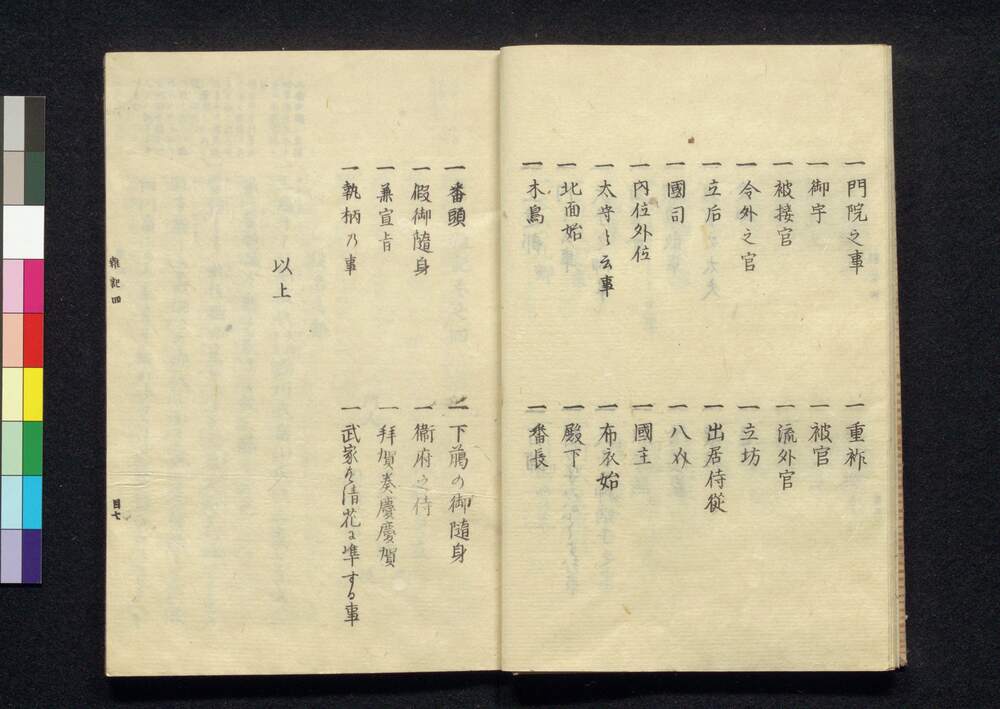 一門院之事
一重祚
一御宇
一被官
一被接官
一流外官
一令外之官
一立坊
一立后
一出居侍從
一國司
一八省
一內位外位
一國主
一太守と云事
一布衣始
一北面始
一殿下
一木鳥
一番長
一番頭
一下﨟の御隨身
一假御隨身
一衞府之侍
一兼宣旨
一拜賀奏慶慶賀
一執柄乃事
一武家を清花に準する事
以上
雜記四
目七